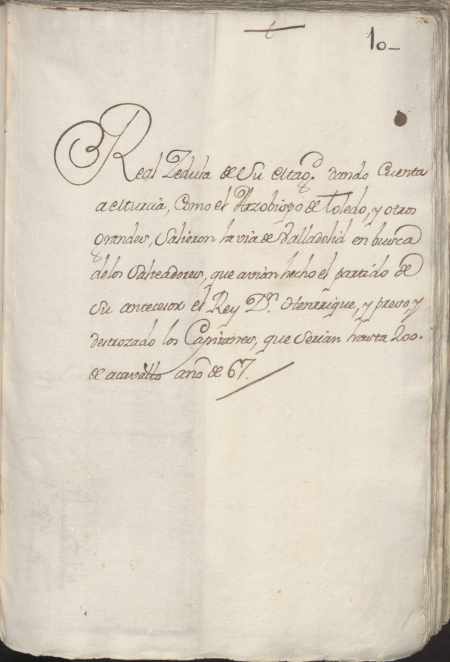 10_
Real Zedula de Su Mag.d dando Cuenta
a Murcia, Como el Arzobispo de Toledo, y otros
Grandes, Salieron la via de Valladolid en busca
de los Salteadores, que avian hecho el partido de
Su antecesor el Rey D.n Henrrique, y preso y
destrozado los Capitanes, que serian hasta 200.
de acavallo año de 67.